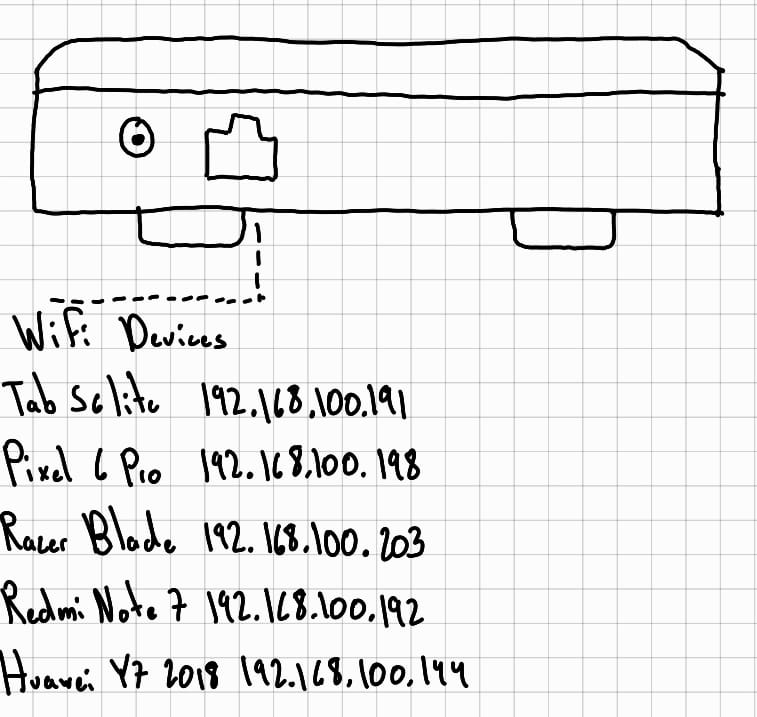 WiFi Devices
Tab S6 lite 192.168.100.191
Pixel 6 Pro 192.168.100.198
Racer Blade 192.168.100.203
Redmi Note 7 192.168.100.192
Huawei Y7 2018 192.168.100.144